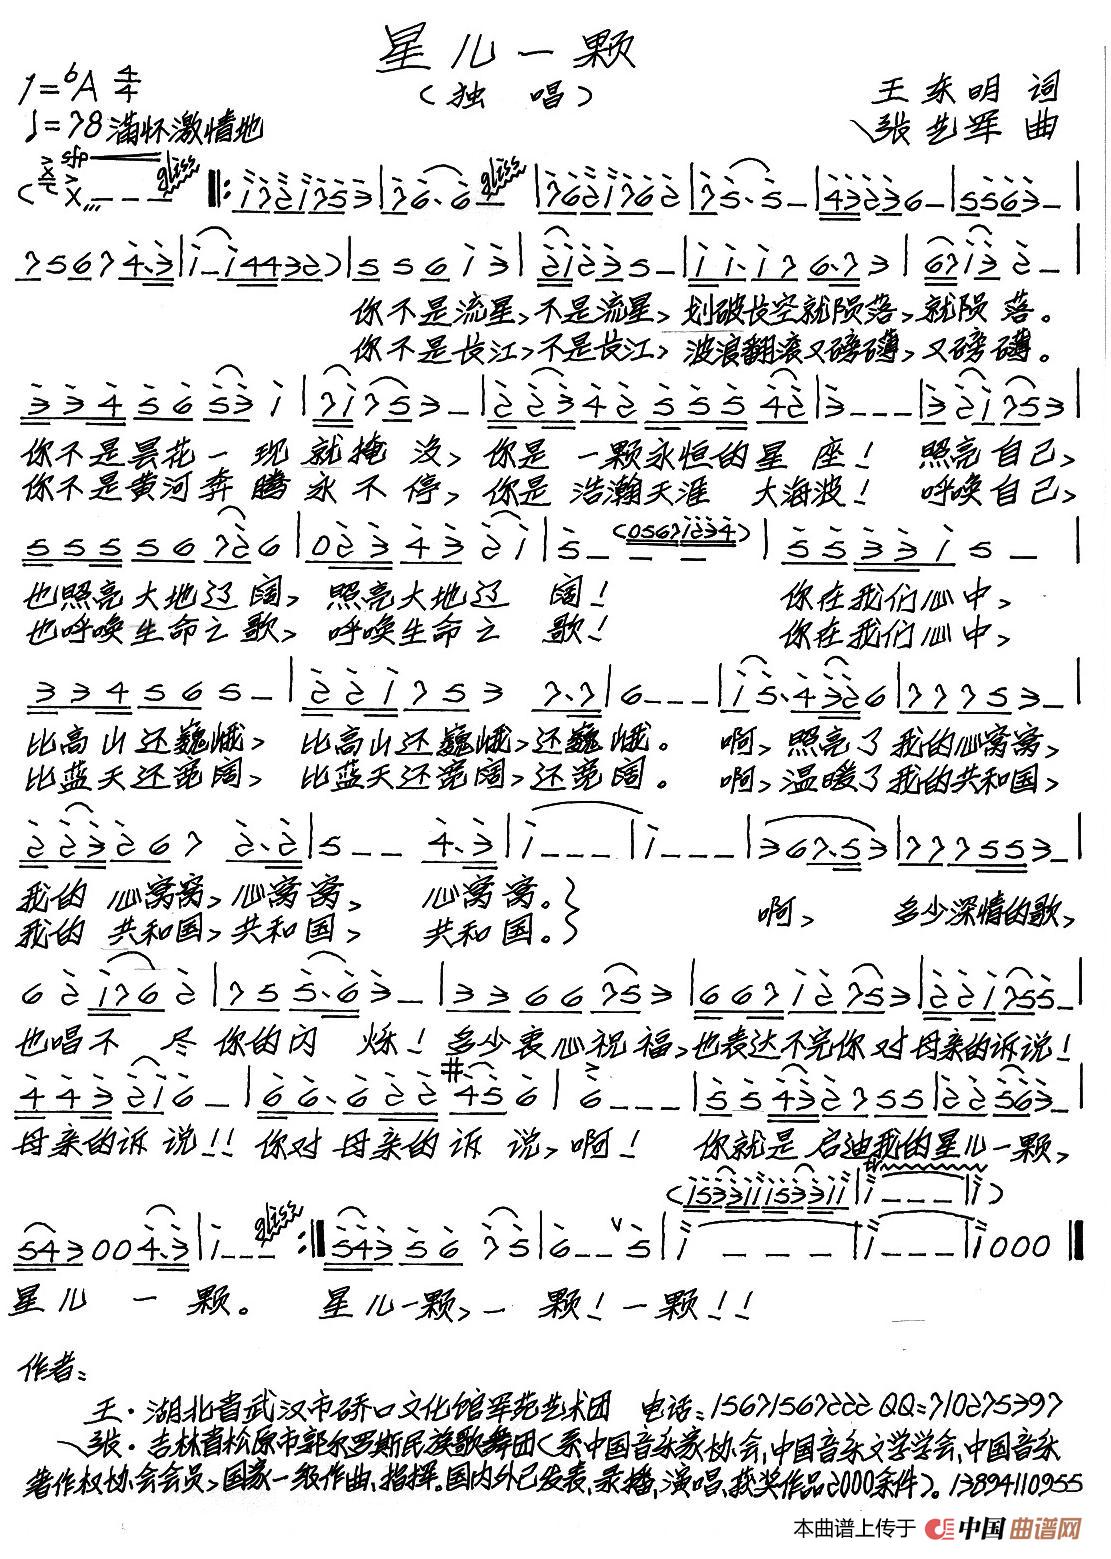 星儿一颗
(独 唱)
1=bA 4/4
王东明 词
♩=78 满怀激情地
张艺军 曲
sfp
gliss
gliss
你不是流星,不是流星,划破长空就陨落,就陨落。
你不是长江,不是长江,波浪翻滚又磅礴,又磅礴。
你不是昙花一现就掩没,你是一颗永恒的星座!照亮自己,
你不是黄河奔腾永不停,你是浩瀚天涯大海波!呼唤自己,
也照亮大地辽阔,照亮大地辽阔!你在我们心中,
也呼唤生命之歌,呼唤生命之歌!你在我们心中,
比高山还巍峨,比高山还巍峨,还巍峨。啊,照亮了我的心窝窝,
比蓝天还宽阔,比蓝天还宽阔,还宽阔。啊,温暖了我的共和国,
我的心窝窝,心窝窝,心窝窝。
我的共和国,共和国,共和国。
啊,多少深情的歌,
也唱不尽你的闪烁!多少衷心祝福,也表达不完你对母亲的诉说!
母亲的诉说!!你对母亲的诉说,啊!你就是启迪我的星儿一颗,
gliss
星儿一颗。星儿一颗,一颗!一颗!!
作者:
王·湖北省武汉市硚口文化馆军苑艺术团 电话:15671567222 QQ:710275397
张·吉林省松原市郭尔罗斯民族歌舞团(系中国音乐家协会,中国音乐文学学会,中国音乐
著作权协会会员,国家一级作曲、指挥。国内外已发表、录播、演唱、获奖作品2000余件)。13894110955
本曲谱上传于 中国曲谱网